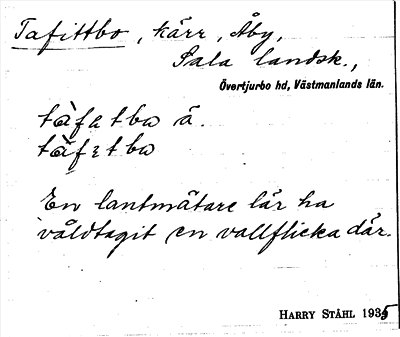 Tafittbo, kärr, Åby,
Sala landsk.,
Övertjurbo hd, Västmanlands län.
tàfatbω ä.
tàfɛtbω
En lantmätare lär ha
våldtagit en vallflicka där.
HARRY STÅHL 1935